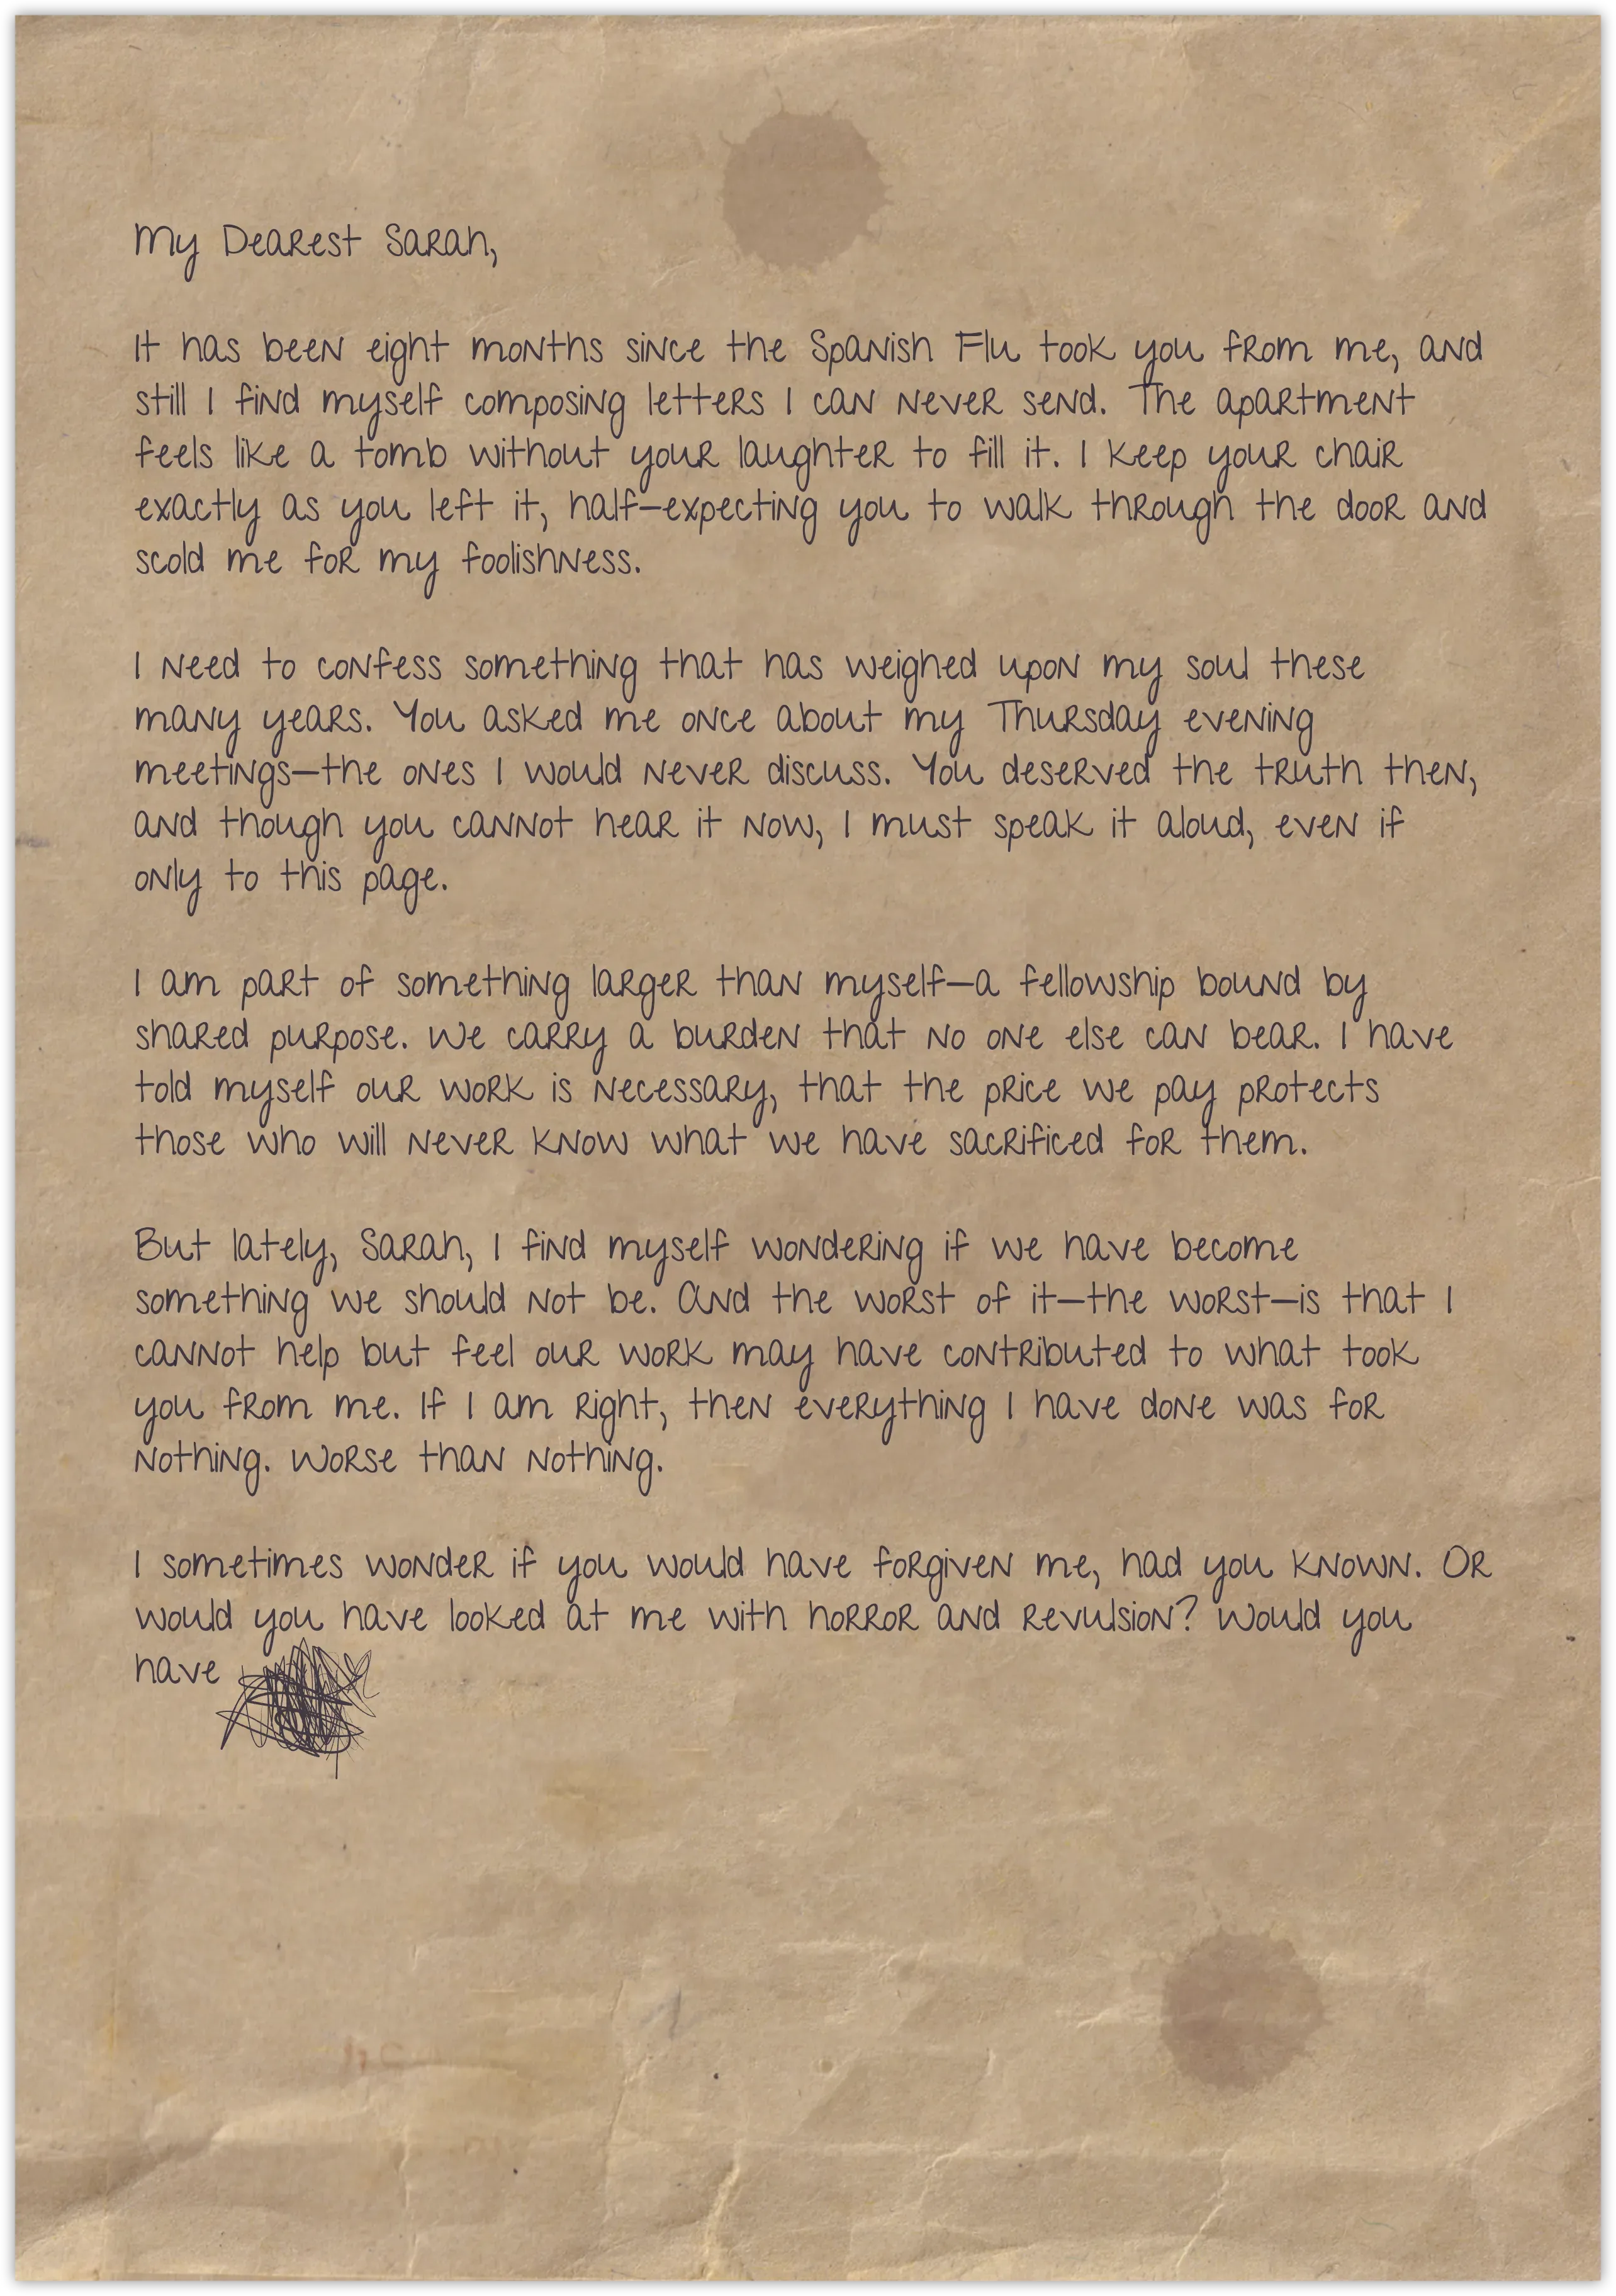 My Dearest Sarah,
It has been eight months since the Spanish Flu took you from me, and
still I find myself composing letters I can never send. The apartment
feels like a tomb without your laughter to fill it. I keep your chair
exactly as you left it, half—expecting you to walk through the door and
scold me for my foolishness.
I need to confess something that has weighed upon my soul these
many years. You asked me once about my Thursday evening
meetings—the ones I would never discuss. You deserved the truth then,
and though you cannot hear it now, I must speak it aloud, even if
only to this page.
I am part of something larger than myself—a fellowship bound by
shared purpose. We carry a burden that no one else can bear. I have
told myself our work is necessary, that the price we pay protects
those who will never know what we have sacrificed for them.
But lately, Sarah, I find myself wondering if we have become
something we should not be. And the worst of it—the worst—is that I
cannot help but feel our work may have contributed to what took
you from me. If I am right, then everything I have done was for
nothing. Worse than nothing.
I sometimes wonder if you would have forgiven me, had you known. Or
would you have looked at me with horror and revulsion? Would you
have